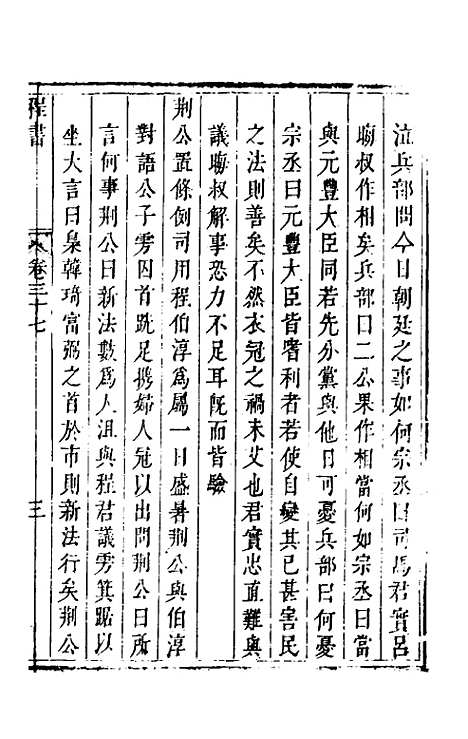 泣兵部問今日朝廷之事如何宗丞曰司馬君實呂
晦叔作相矣兵部曰二公果作相當何如宗丞曰當
與元豐大臣同若先分黨與他日可憂兵部曰何憂
宗丞曰元豐大臣皆嗜利者若使自變其已甚害民
之法則善矣不然衣冠之禍未艾也君實忠直難與
議晦叔解事恐力不足耳旣而皆驗
荆公置條例司用程伯淳爲屬一日盛暑荆公與伯淳
對語公子雱囚首跣足擕婦人冠以出問荆公曰所
言何事荆公曰新法數爲人沮與程君議雱箕踞以
坐大言曰梟韓琦富弼之首於市則新法行矣荆公
程書
卷三十七
三